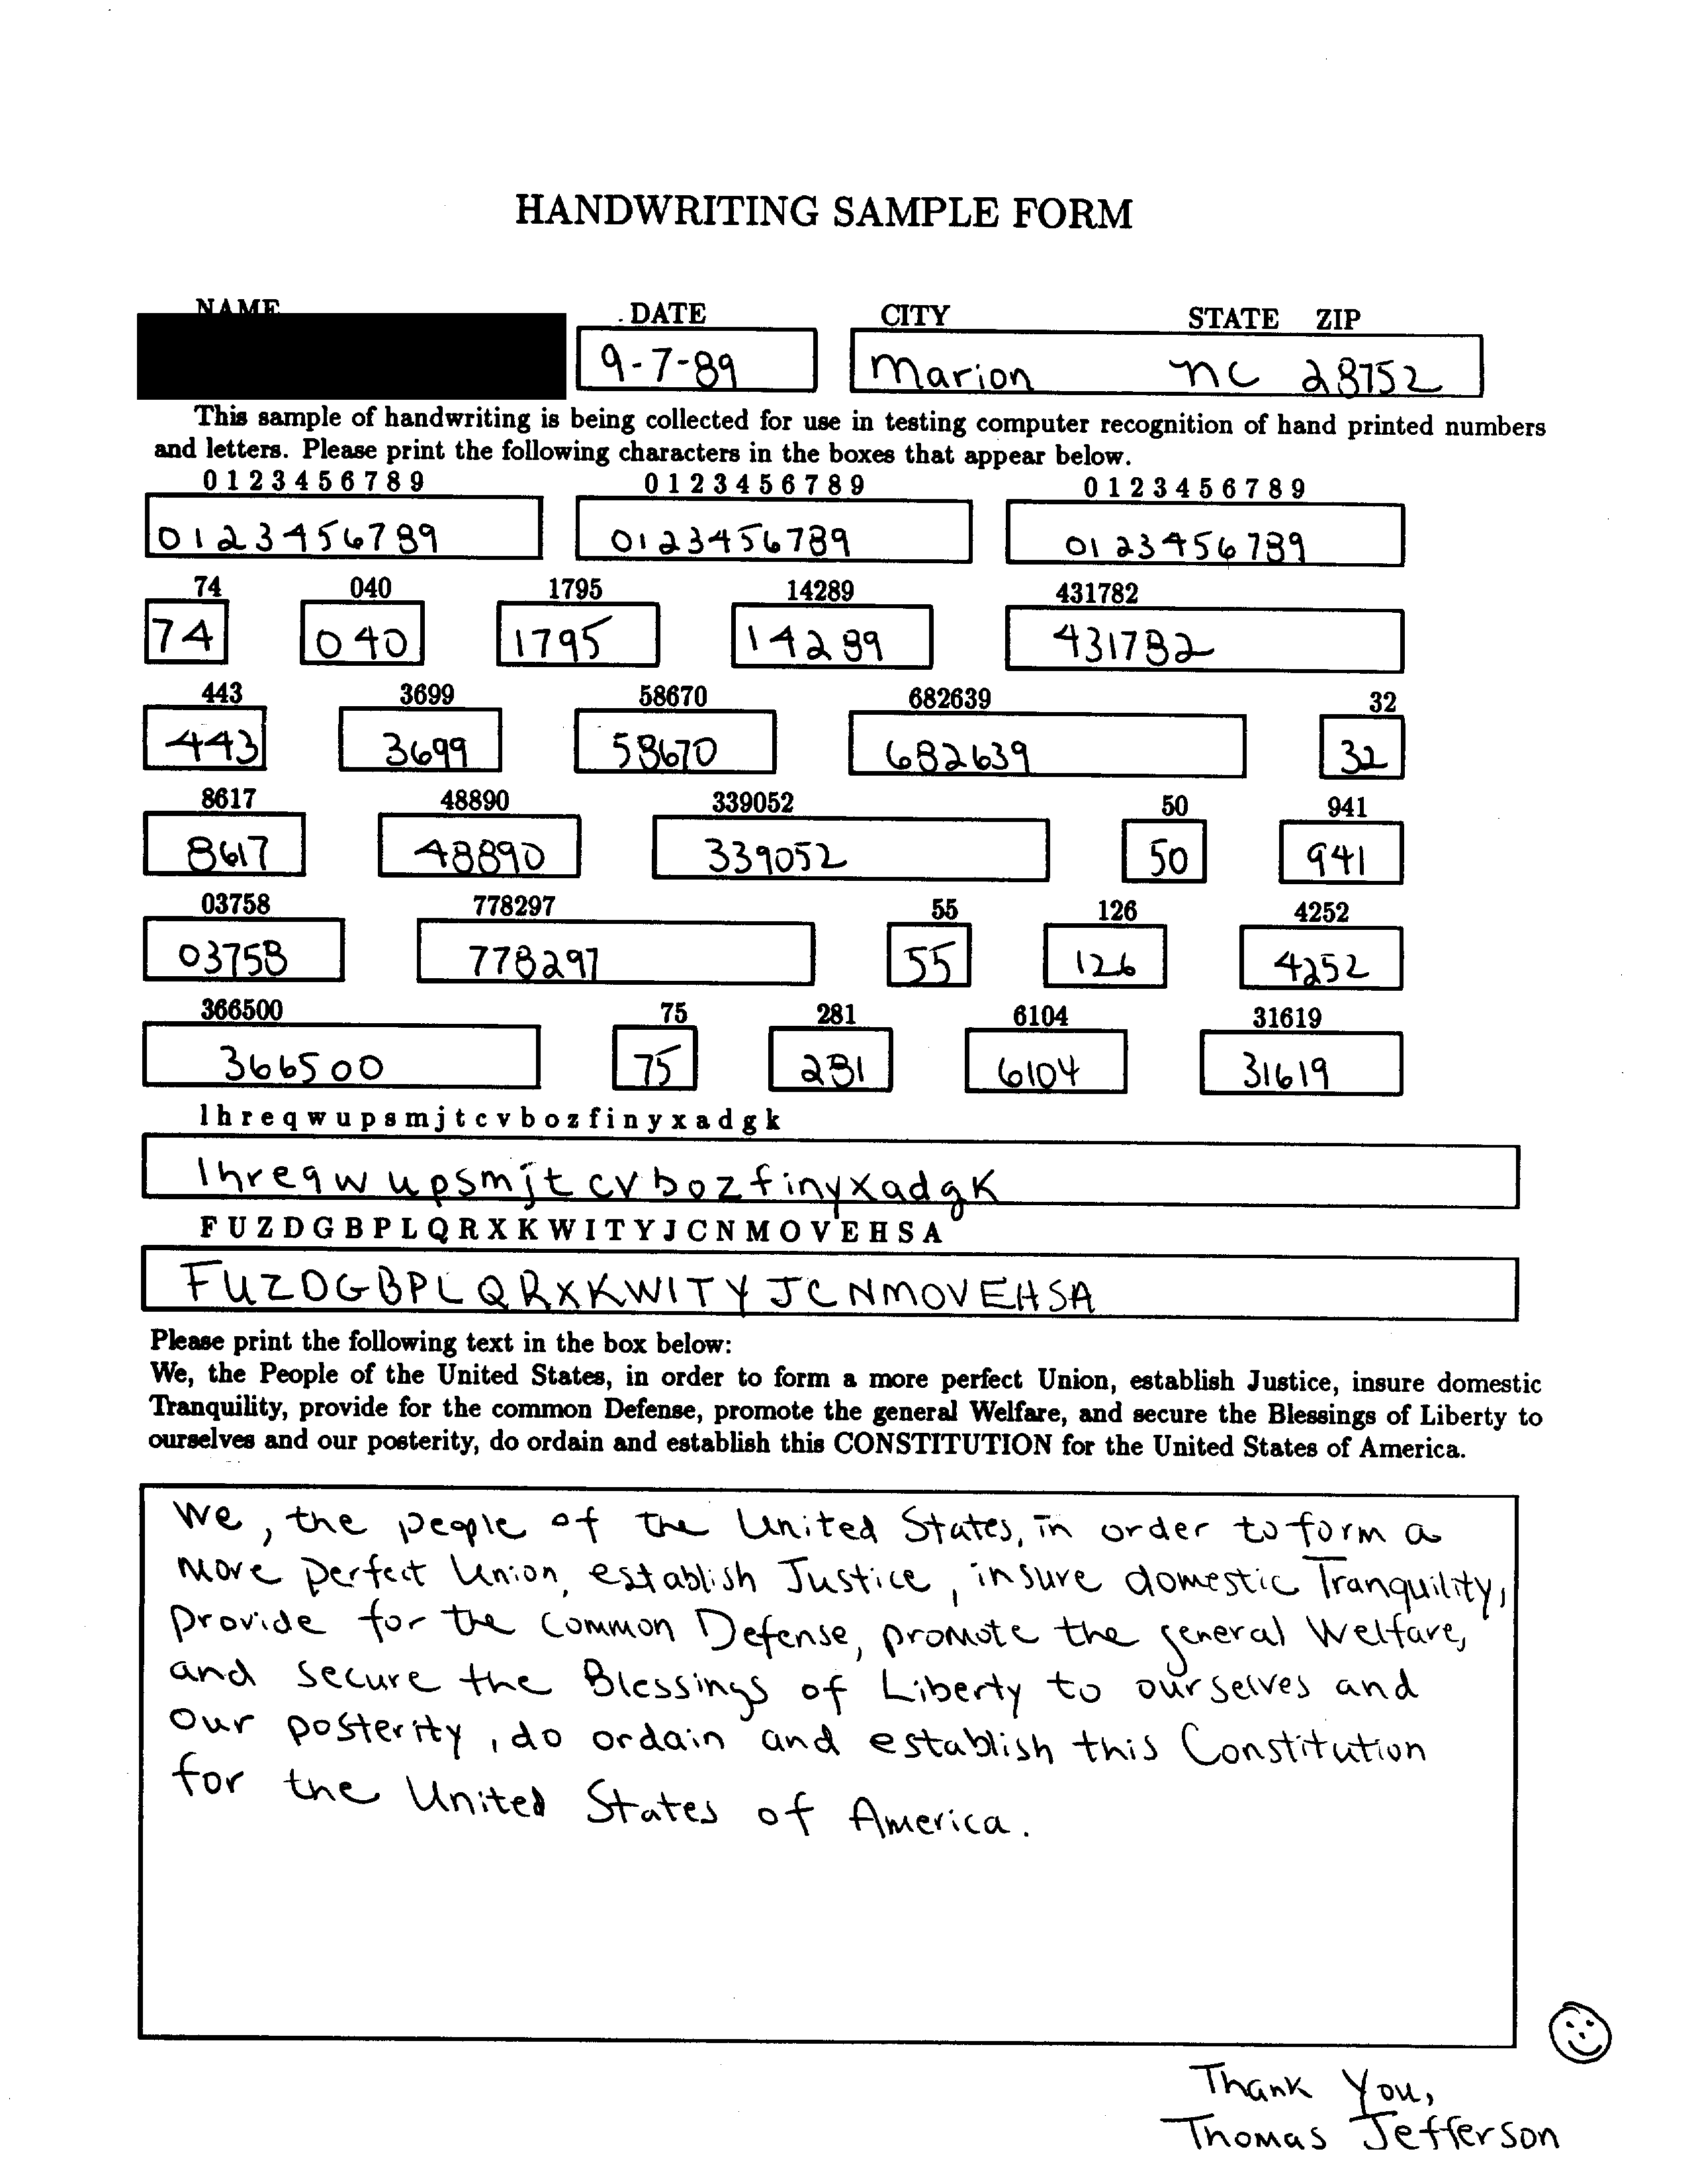 HANDWRITING SAMPLE FORM
NAME DATE CITY STATE ZIP
9-7-89 Marion NC 28752
This sample of handwriting is being collected for use in testing computer recognition of hand printed numbers
and letters. Please print the following characters in the boxes that appear below.
0 1 2 3 4 5 6 7 8 9 0 1 2 3 4 5 6 7 8 9 0 1 2 3 4 5 6 7 8 9
0123456789 0123456789 0123456789
74 040 1795 14289 431782
74 040 1795 14289 431782
443 3699 58670 682639 32
443 3699 58670 682639 32
8617 48890 339052 50 941
8617 48890 339052 50 941
03758 778297 55 126 4252
03758 778297 55 126 4252
366500 75 281 6104 31619
366500 75 281 6104 31619
l h r e q w u p s m j t c v b o z f i n y x a d g k
l h r e q w u p s m j t c v b o z f i n y x a d g K
F U Z D G B P L Q R X K W I T Y J C N M O V E H S A
F U Z D G B P L Q R X K W I T Y J C N M O V E H S A
Please print the following text in the box below:
We, the People of the United States, in order to form a more perfect Union, establish Justice, insure domestic
Tranquility, provide for the common Defense, promote the general Welfare, and secure the Blessings of Liberty to
ourselves and our posterity, do ordain and establish this CONSTITUTION for the United States of America.
We, the people of the United States, in order to form a
more perfect Union, establish Justice, insure domestic Tranquility,
provide for the common Defense, promote the general Welfare,
and secure the Blessings of Liberty to ourselves and
our posterity, do ordain and establish this Constitution
for the United States of America.
Thank You,
Thomas Jefferson